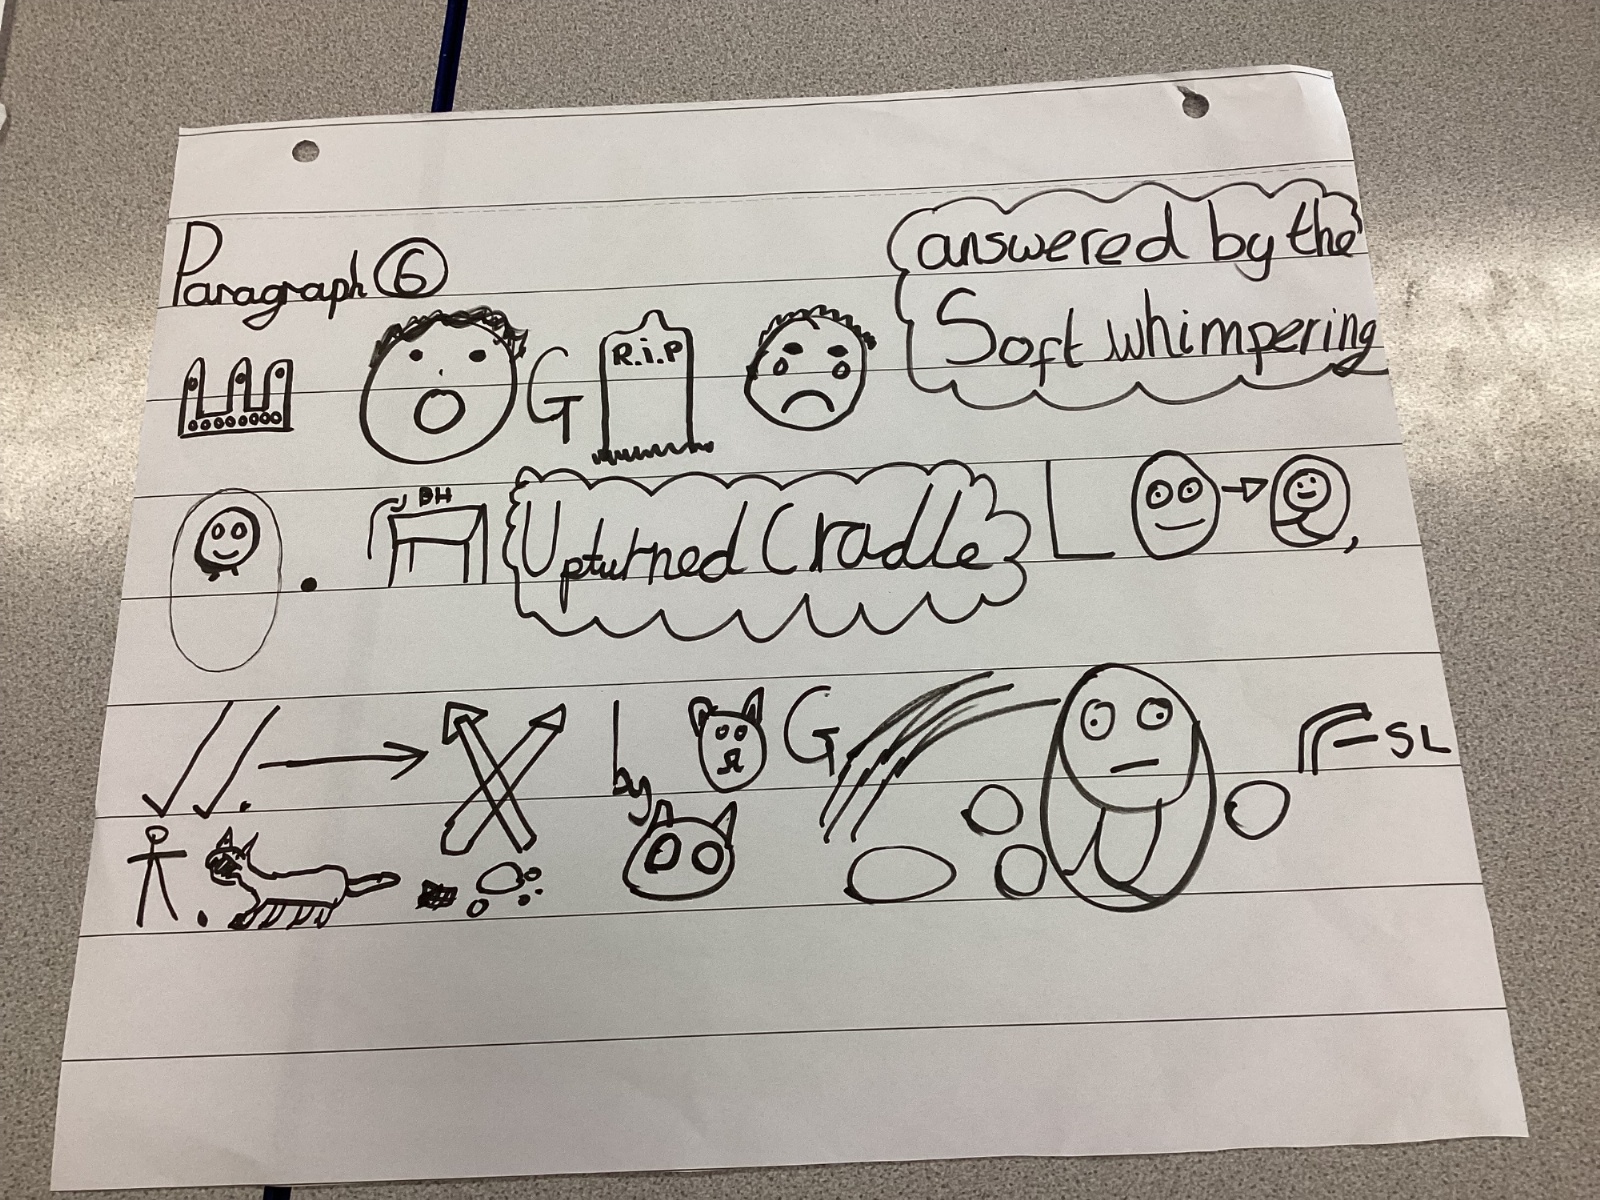 Paragraph 6
answered by the
Soft whimpering
G R.i.P
BH Upturned Cradle L ,
by G SL